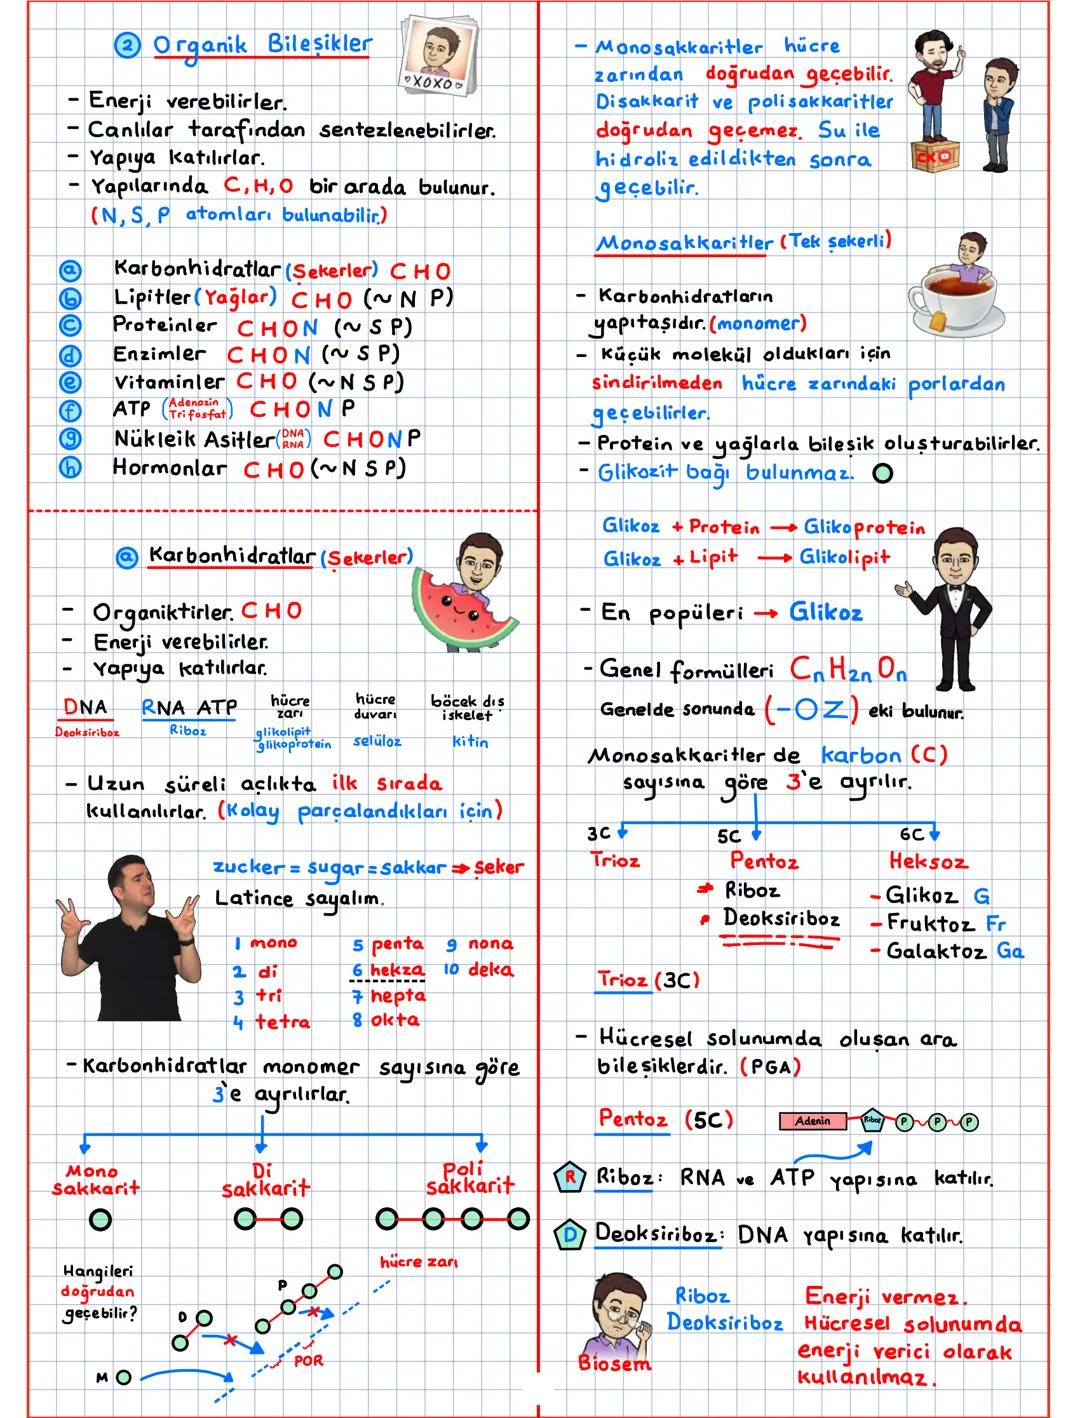 2 Organik Bileşikler
XOXO
- Enerji verebilirler.
- Canlılar tarafından sentezlenebilirler.
- Yapıya katılırlar.
- Yapılarında C, H, O bir arada bulunur.
(N, S, P atomları bulunabilir.)
a Karbonhidratlar (Şekerler) CHO
b Lipitler (Yağlar) CHO (~ N P)
c Proteinler CHON (~ S P)
d Enzimler CHON (~ S P)
e Vitaminler CHO (~ N S P)
f ATP (Adenozin Trifosfat) CHONP
g Nükleik Asitler (DNA RNA) CHONP
h Hormonlar CHO (~ N S P)
a Karbonhidratlar (Şekerler)
- Organiktirler. CHO
- Enerji verebilirler.
- Yapıya katılırlar.
DNA RNA ATP hücre zarı hücre duvarı böcek dış iskelet
Deoksiriboz Riboz glikolipit glikoprotein selüloz kitin
- Uzun süreli açlıkta ilk sırada
kullanılırlar. (Kolay parçalandıkları için)
zucker = sugar = sakkar ⇒ şeker
Latince sayalım.
1 mono 5 penta 9 nona
2 di 6 hekza 10 deka
3 tri 7 hepta
4 tetra 8 okta
- Karbonhidratlar monomer sayısına göre
3'e ayrılırlar.
Mono sakkarit
Di sakkarit
Poli sakkarit
Hangileri
doğrudan
geçebilir?
hücre zarı
P
D
POR
M
- Monosakkaritler hücre
zarından doğrudan geçebilir.
Disakkarit ve polisakkaritler
doğrudan geçemez. Su ile
hidroliz edildikten sonra
geçebilir.
Monosakkaritler (Tek şekerli)
- Karbonhidratların
yapıtaşıdır. (monomer)
- Küçük molekül oldukları için
sindirilmeden hücre zarındaki porlardan
geçebilirler.
- Protein ve yağlarla bileşik oluşturabilirler.
- Glikozit bağı bulunmaz.
Glikoz + Protein → Glikoprotein
Glikoz + Lipit → Glikolipit
- En popüleri → Glikoz
- Genel formülleri CnH2nOn
Genelde sonunda (-OZ) eki bulunur.
Monosakkaritler de karbon (C)
sayısına göre 3'e ayrılır.
3C 5C 6C
Trioz Pentoz Heksoz
Riboz
Deoksiriboz
- Glikoz G
- Fruktoz Fr
- Galaktoz Ga
Trioz (3C)
- Hücresel solunumda oluşan ara
bileşiklerdir. (PGA)
Pentoz (5C)
Adenin Riboz P P P
R Riboz: RNA ve ATP yapısına katılır.
D Deoksiriboz: DNA yapısına katılır.
Biosem
Riboz
Deoksiriboz
Enerji vermez.
Hücresel solunumda
enerji verici olarak
kullanılmaz.